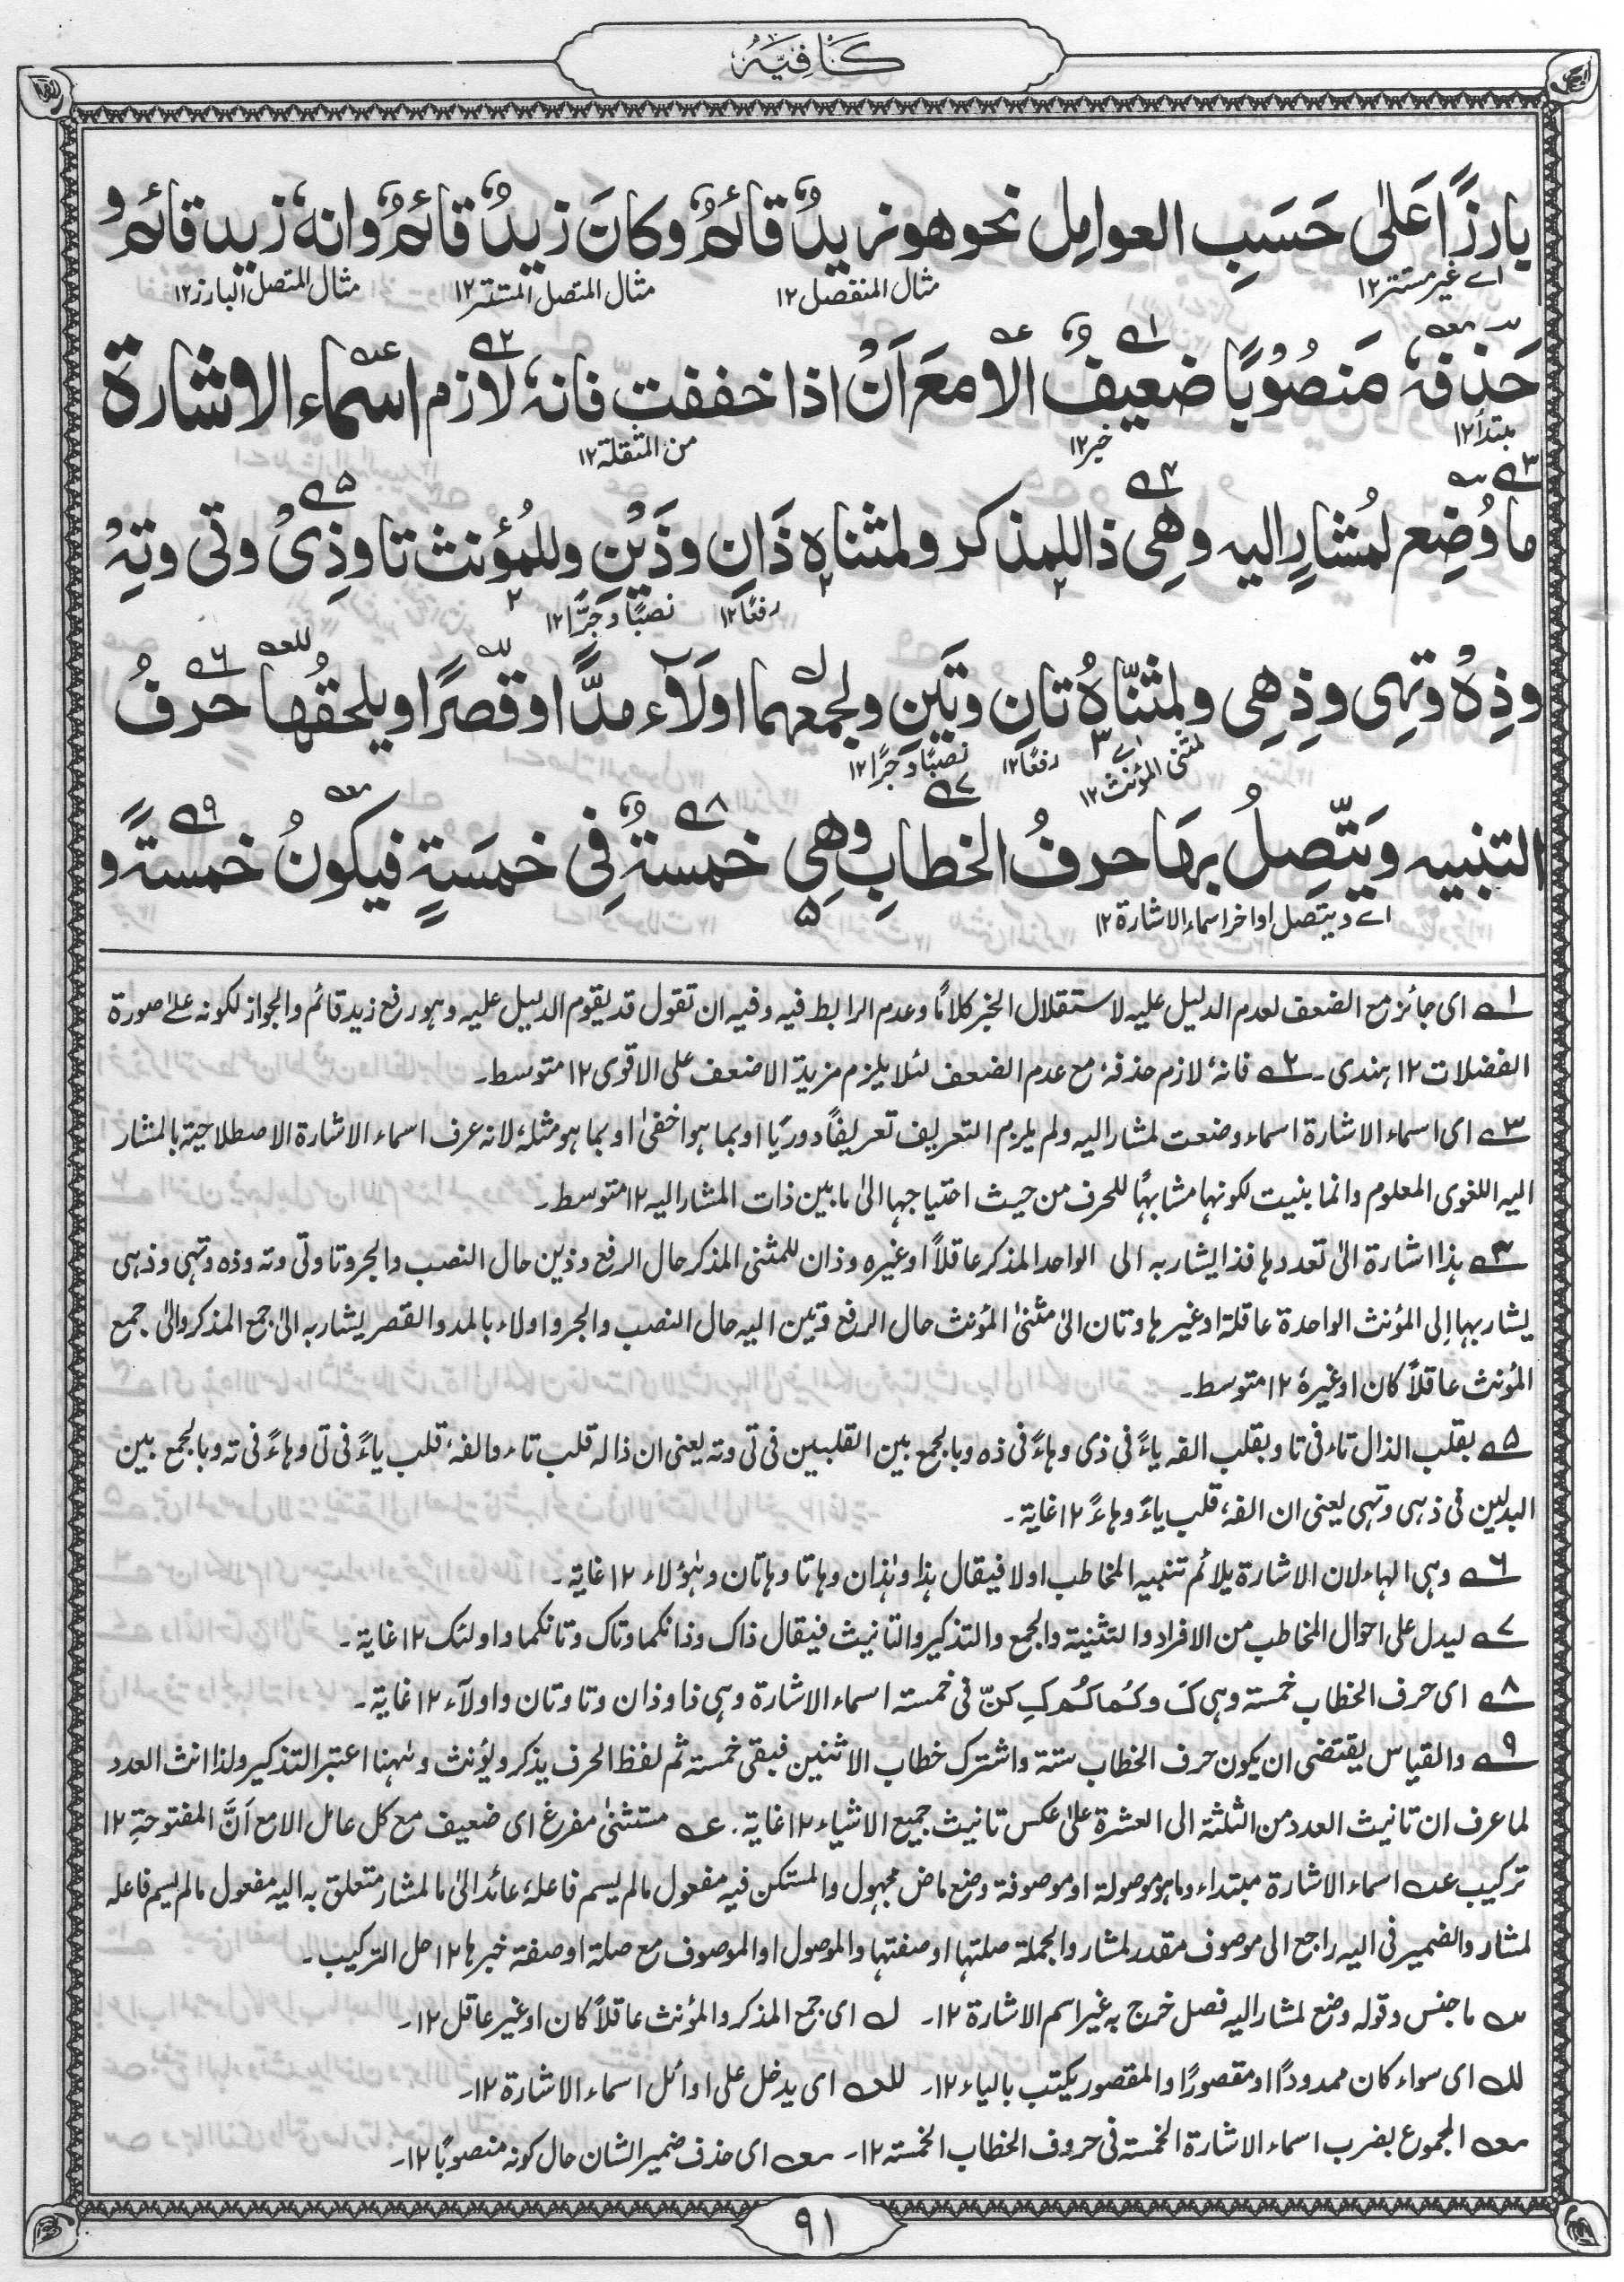 كَافِيَه
بارزًا عَلٰى حَسَبِ العوامِل نحو هو زيدٌ قائمٌ وكانَ زيدٌ قائمٌ وانهٗ زيد قائم و
اے غیر مستتر١٢ مثال المنفصل ١٢ مثال المتصل المستتر١٢ مثال المتصل البارز١٢
حَذفهٗ مَنصُوبًا ضعيفٌ الا مَعَ اَنْ اذا خففت فانهٗ لازم اسماء الاشارة
مبتدأ١٢ خبر١٢ من المثقلة١٢
ما وُضِع لمُشارٍ اليه وهِي ذا للمذكر ولمثناه ذَانِ وذَيْنِ وللمُؤنث تا وذِيْ وتى وتِهْ
رفعًا١٢ نصبًا وجرًّا١٢
وذِهْ وتِهِى وذِهِي ولمثنّاهُ تانِ وتَينِ ولجمعهما اولَآء مدًّا وقصرًا ويلحقُها حرفُ
اے لمثنى المؤنث١٢ رفعًا١٢ نصبًا وجرًا١٢
التنبيه ويَتّصِلُ بهَا حرفُ الخطابِ وهِي خمسةٌ فِى خمسَةٍ فيكونُ خمسةً و
اے ويتصل اواخر اسماء الاشارة١٢
١ے اى جائز مع الضعف لعدم الدليل عليه لاستقلال الخبر كلامًا وعدم الرابط فيه وفيه ان تقول قد يقوم الدليل عليه وهو رفع زيد قائم والجواز لكونه علےٰ صورة
الفضلات ١٢ ہندی۔ ٢ے فانهٗ لازم حذفهٗ مع عدم الضعف لئلا يلزم مزية الاضعف على الاقوى ١٢ متوسط۔
٣ے اى اسماء الاشارة اسماء وضعت لمشار اليه ولم يلزم التعريف تعريفًا دوريًا او بما هو اخفىٰ او بما هو مثله لانه عرف اسماء الاشارة الاصطلاحية بالمشار
اليه اللغوى المعلوم وانما بنيت لكونها مشابهًا للحرف من حيث احتياجها الىٰ ما بين ذات المشار اليه ١٢ متوسط۔
٤ے ہذا اشارة الىٰ تعددها فذا يشار به الى الواحد المذكر عاقلاً او غيره وذان للمثنى المذكر حال الرفع وذين حال النصب والجر وتا وتى وته وذه وتهى وذهى
يشار بها اِلى المؤنث الواحدة عاقلة او غيرها وتان الىٰ مثنىٰ المؤنث حال الرفع وتين اليه حال النصب والجر واولاء بالمد والقصر يشار به الىٰ جمع المذكر والىٰ جمع
المؤنث عاقلاً كان او غيرهٗ ١٢ متوسط۔
٥ے بقلب الذال تاء فى تا وبقلب الفه ياءً فى ذى وهاءً فى ذه وبالجمع بين القلبين فى تى وته يعنى ان ذاله قلب تاء والفهٗ قلب ياءً فى تى وهاءً فى ته وبالجمع بين
البدلين فى ذهى وتهى يعنى ان الفهٗ قلب ياءً وهاءً ١٢ غاية۔
٦ے وہى الهاء لان الاشارة يلائم تنبيه المخاطب اولا فيقال ہذا وہٰذان وہاتا وہاتان وہٰؤلاء ١٢ غاية۔
٧ے ليدل على احوال المخاطب من الافراد والتثنية والجمع والتذكير والتانيث فيقال ذاك وذانكما وتاك وتانكما واولئك ١٢ غاية۔
٨ے اى حرف الخطاب خمسة وہى كَ وكُما كُم كِ كنّ فى خمسة اسماء الاشارة وہى ذا وذان وتا وتان واولآء ١٢ غاية۔
٩ے والقياس يقتضى ان يكون حرف الخطاب ستة واشترك خطاب الاثنين فبقى خمسة ثم لفظ الحرف يذكر ويؤنث وہٰہنا اعتبر التذكير ولذا انث العدد
لما عرف ان تانيث العدد من الثلثة الى العشرة علىٰ عكس تانيث جميع الاشياء ١٢ غاية۔ عہ مستثنىٰ مفرغ اى ضعيف مع كل عامل الا مع اَنَّ المفتوحة ١٢
تركيب عہ اسماء الاشارة مبتداء وما ہو موصولة او موصوفة وضع ماض مجہول والمستكن فيه مفعول مالم يسم فاعله عائد الىٰ ما لمشار متعلق به اليه مفعول مالم يسم فاعله
لمشار والضمير فى اليه راجع الى موصوف مقدر لمشار والجملة صلتها او صفتها والموصول او الموصوف مع صلة او صفة خبرها ١٢ حل التركيب۔
سہ ما جنس وقوله وضع لمشار اليه فصل خرج به غير اسم الاشارة ١٢۔ لہ اى جمع المذكر والمؤنث عاقلاً كان او غير عاقل ١٢۔
للہ اى سواء كان ممدودًا او مقصورًا والمقصور يكتب بالياء ١٢۔ للعہ اى يدخل على اوائل اسماء الاشارة ١٢۔
معہ المجموع بضرب اسماء الاشارة الخمسة فى حروف الخطاب الخمسة ١٢۔ معہ اى حذف ضمير الشان حال كونه منصوبًا ١٢۔
٩١